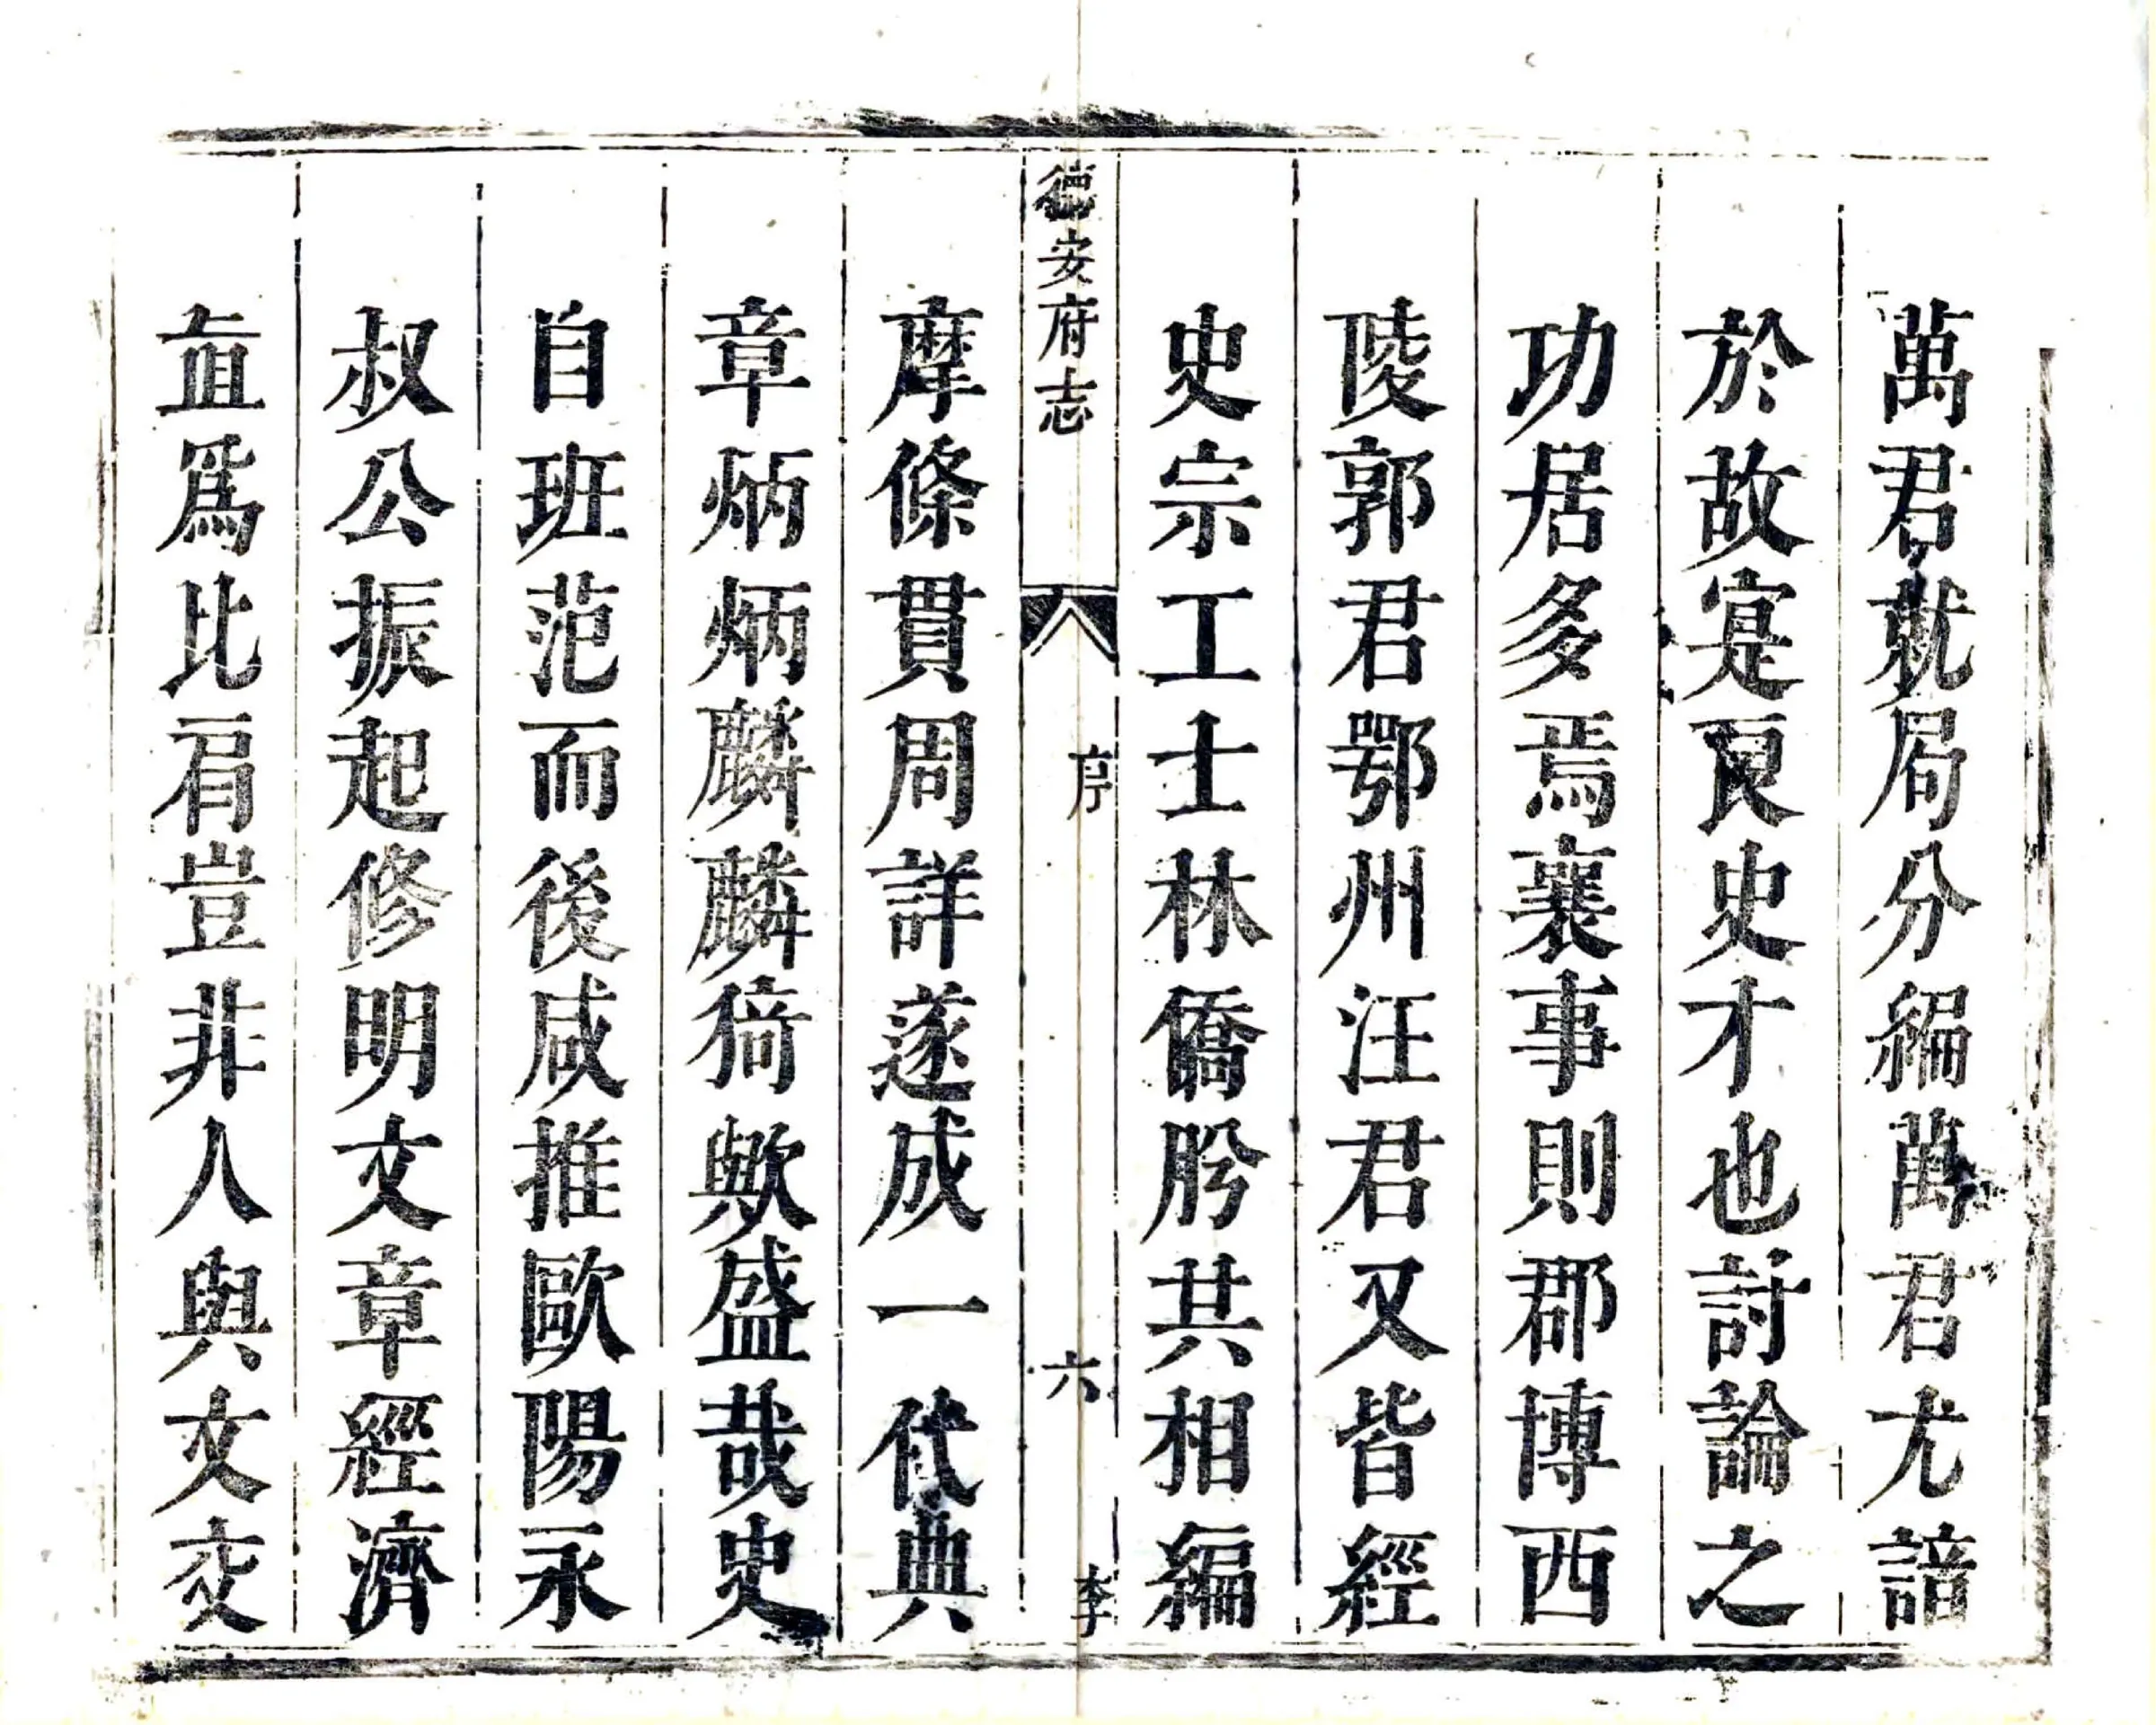 萬君就局分編萬君尤諳
於故寔良史才也討論之
功居多焉襄事則郡博西
陵郭君鄂州汪君又皆經
史宗工士林僑肸共相編
德安府志
序
六
李
摩條貫周詳遂成一代典
章炳炳麟麟猗歟盛哉史
自班范而後咸推歐陽永
叔公振起修明文章經濟
直爲比肩豈非人與文交